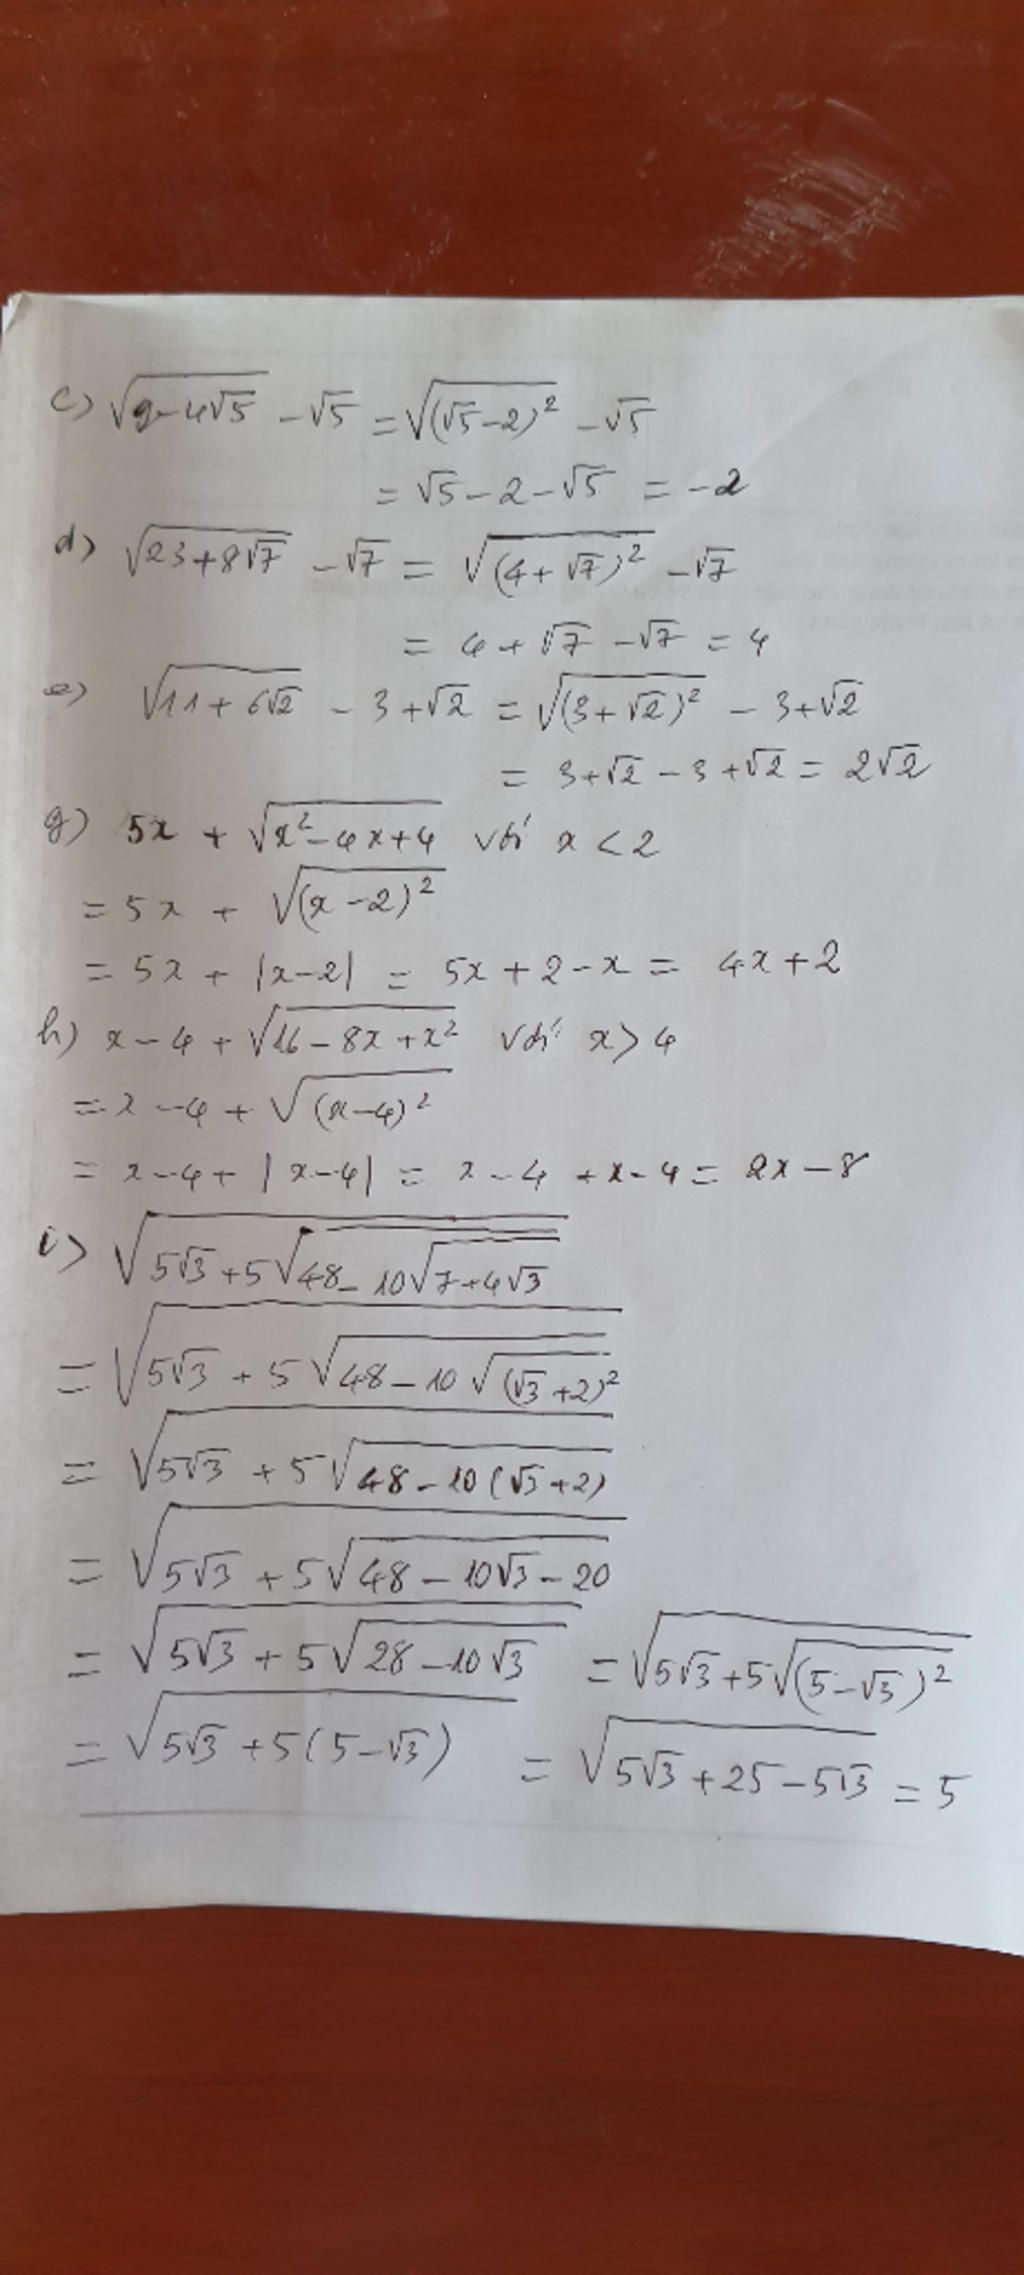 c) √(9-4√5) - √5 = √((√5-2)²) - √5
= √5 - 2 - √5 = -2
d) √(23+8√7) - √7 = √((4+√7)²) - √7
= 4 + √7 - √7 = 4
e) √(11+6√2) - 3+√2 = √((3+√2)²) - 3+√2
= 3+√2 - 3 + √2 = 2√2
g) 5x + √(x²-4x+4) với x < 2
= 5x + √((x-2)²)
= 5x + |x-2| = 5x + 2 - x = 4x+2
h) x - 4 + √(16-8x+x²) với x > 4
= x - 4 + √((x-4)²)
= x - 4 + |x-4| = x - 4 + x - 4 = 2x - 8
i) √(5√3+5√(48-10√(7+4√3)))
= √(5√3+5√(48-10√((√3+2)²)))
= √(5√3+5√(48-10(√3+2)))
= √(5√3+5√(48-10√3-20))
= √(5√3+5√(28-10√3)) = √(5√3+5√((5-√3)²))
= √(5√3+5(5-√3)) = √(5√3+25-5√3) = 5